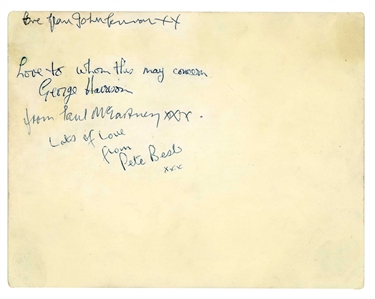 love from John Lennon xx
Love to whom this may concern
George Harrison
from Paul McCartney xxx.
Lots of Love
from
Pete Best
xxx